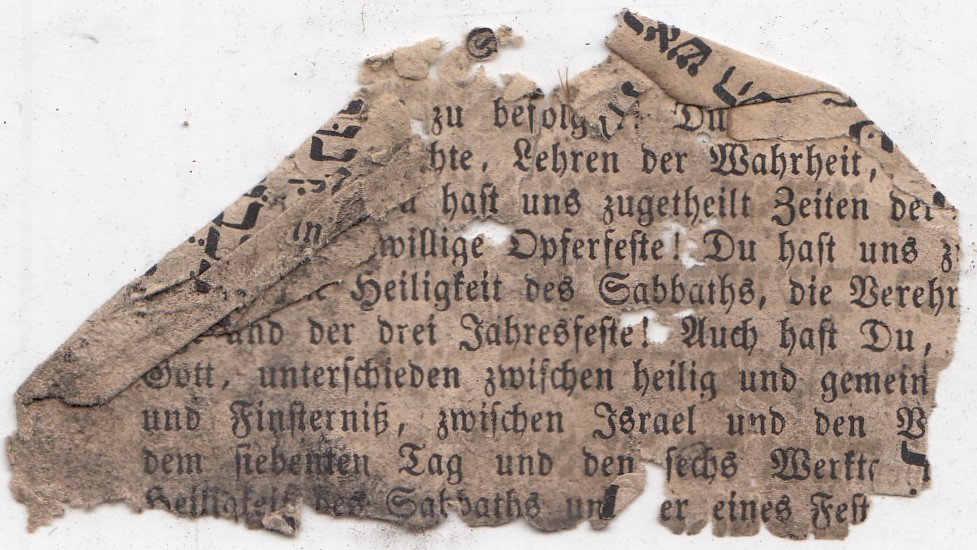 zu befolg Du
hte, Lehren der Wahrheit,
haſt uns zugetheilt Zeiten der
willige Opferfeſte! Du haſt uns z
Heiligkeit des Sabbaths, die Verehr
und der drei Jahresfeſte! Auch haſt Du,
Gott, unterſchieden zwiſchen heilig und gemein
und Finſterniß, zwiſchen Israel und den V
dem ſiebenten Tag und den ſechs Werkta
Heiligkeit des Sabbaths un er eines Feſt